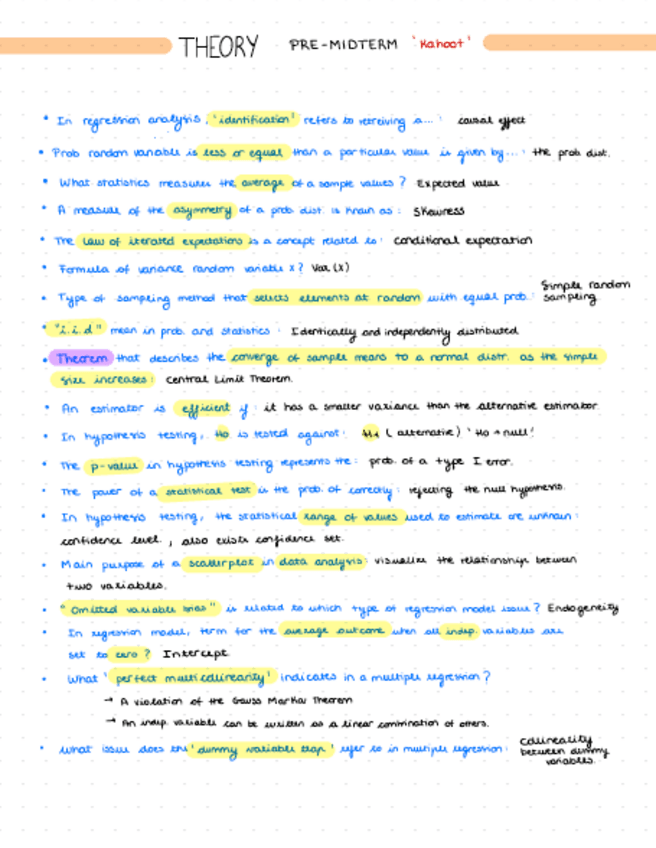 THEORY PRE-MIDTERM 'Kahoot'
• In regression analysis, 'identification' refers to retreiving a...: causal effect
• Prob random variable is less or equal than a particular value is given by...: the prob dist.
• What statistics measures the average of a sample values? Expected value
• A measure of the asymmetry of a prob dist. is known as: Skewness
• The law of iterated expectations is a concept related to: conditional expectation
• Formula of variance random variable x? Var(x)
• Type of sampling method that selects elements at random with equal prob: Simple random
sampling
• "i.i.d" mean in prob. and statistics: Identically and independently distributed
• Theorem that describes the converge of sample means to a normal distr. as the simple
size increases: Central Limit Theorem.
• An estimator is efficient if: it has a smaller variance than the alternative estimator.
• In hypothesis testing, Ho is tested against: H1 (alternative) 'Ho → null'
• The p-value in hypothesis testing represents the: prob. of a type I error.
• The power of a statistical test is the prob. of correctly: rejecting the null hypothesis.
• In hypothesis testing, the statistical range of values used to estimate are unknown:
confidence level, also exists confidence set.
• Main purpose of a scatterplot in data analysis: visualize the relationship between
two variables.
• "Omitted variable bias" is related to which type of regression model issue? Endogeneity
• In regression model, term for the average outcome when all indep. variables are
set to zero? Intercept
• What 'perfect multicollinearity' indicates in a multiple regression?
→ A violation of the Gauss Markov Theorem
→ An indep. variable can be written as a linear combination of others.
• What issue does the 'dummy variable trap' refer to in multiple regression: collinearity
between dummy
variables.